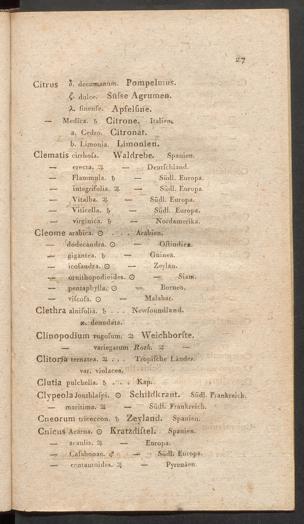 27
Citrus δ. decumanum. Pompelmus.
ζ. dulce. Süſse Agrumen.
λ. ſinenſe. Apfelſine.
— Medica. ♄ Citrone. Italien.
a. Cedro. Citronat.
b. Limonia. Limonien.
Clematis cirrhoſa. Waldrebe. Spanien.
— erecta. ♃ — Deutſchland.
— Flammula. ♄ — Südl. Europa.
— integrifolia. ♃ — Südl. Europa.
— Vitalba. ♃ — Südl. Europa.
— Viticella. ♄ — Südl. Europa.
— virginica. ♄ — Nordamerika.
Cleome arabica. ⊙ . . . Arabien.
— dodecandra. ⊙ — Oſtindien.
— gigantea. ♄ — Guinea.
— icoſandra. ⊙ — Zeylan.
— ornithopodioides. ⊙ — Siam.
— pentaphylla. ⊙ — Borneo.
— viſcoſa. ⊙ — Malabar.
Clethra alnifolia. ♄ . . . Newfoundland.
α. denudata.
Clinopodium rugoſum. ♃ Weichborſte.
— variegatum Roth. ♃ —
Clitoria ternatea. ♃ . . . Tropiſche Länder.
var. violacea.
Clutia pulchella. ♄ . . . Kap.
Clypeola Jonthlaſpi. ⊙ Schildkraut. Südl. Frankreich.
— maritima. ♃ — Südl. Frankreich.
Cneorum tricoccon. ♄ Zeyland. Spanien.
Cnicus Acarna. ⊙ Kratzdiſtel. Spanien.
— acaulis. ♃ — Europa.
— Caſabonae. ♂ — Südl. Europa.
— centauroides. ♃ — Pyrenäen.